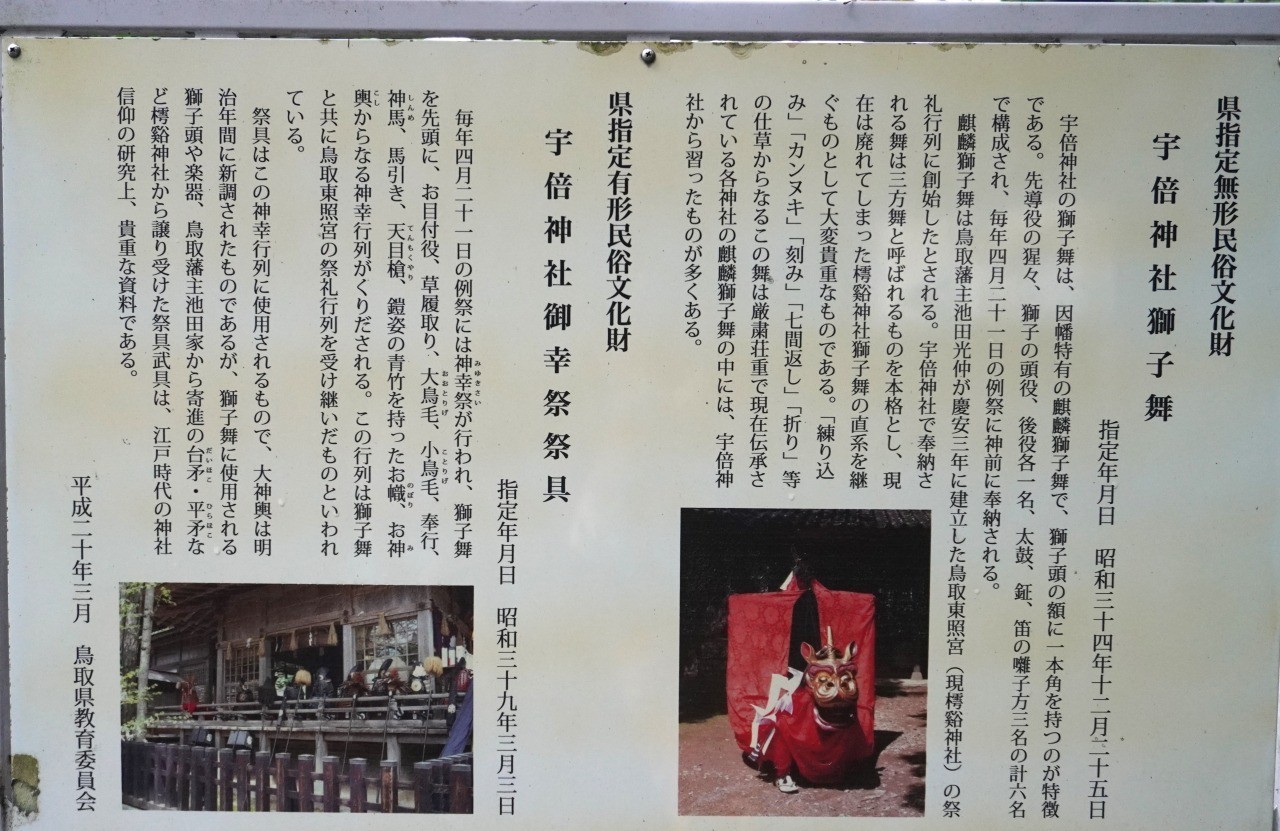 県指定無形民俗文化財
宇倍神社獅子舞
指定年月日　昭和三十四年十二月二十五日
宇倍神社の獅子舞は、因幡特有の麒麟獅子舞で、獅子頭の額に一本角を持つのが特徴
である。先導役の猩々、獅子の頭役、後役各一名、太鼓、鉦、笛の囃子方三名の計六名
で構成され、毎年四月二十一日の例祭に神前に奉納される。
麒麟獅子舞は鳥取藩主池田光仲が慶安三年に建立した鳥取東照宮（現樗谿神社）の祭
礼行列に創始したとされる。宇倍神社で奉納さ
れる舞は三方舞と呼ばれるものを本格とし、現
在は廃れてしまった樗谿神社獅子舞の直系を継
ぐものとして大変貴重なものである。「練り込
み」「カンヌキ」「刻み」「七間返し」「折り」等
の仕草からなるこの舞は厳粛荘重で現在伝承さ
れている各神社の麒麟獅子舞の中には、宇倍神
社から習ったものが多くある。
県指定有形民俗文化財
宇倍神社御幸祭祭具
指定年月日　昭和三十九年三月三日
毎年四月二十一日の例祭には神幸祭が行われ、獅子舞
みゆきさい
を先頭に、お目付役、草履取り、大鳥毛、小鳥毛、奉行、
おおとりげ　ことりげ
神馬、馬引き、天目槍、鎧姿の青竹を持ったお幟、お神
しんめ　てんもくやり　のぼり　み
輿からなる神幸行列がくりだされる。この行列は獅子舞
こし
と共に鳥取東照宮の祭礼行列を受け継いだものといわれ
ている。
祭具はこの神幸行列に使用されるもので、大神輿は明
治年間に新調されたものであるが、獅子舞に使用される
獅子頭や楽器、鳥取藩主池田家から寄進の台矛・平矛な
だいほこ　ひらほこ
ど樗谿神社から譲り受けた祭具武具は、江戸時代の神社
信仰の研究上、貴重な資料である。
平成二十年三月　鳥取県教育委員会